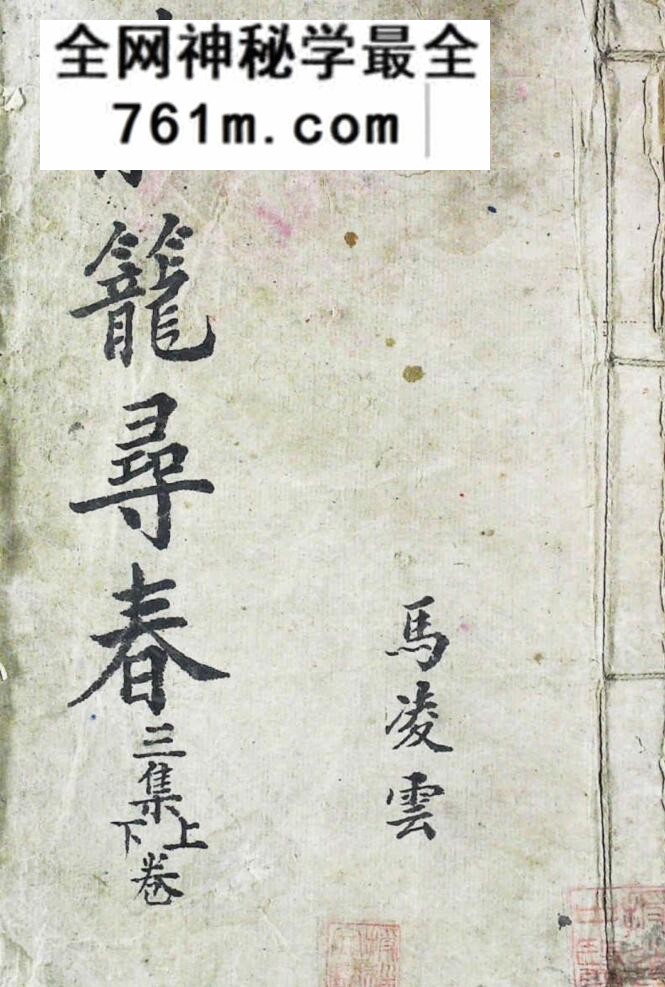 全网神秘学最全
761m.com
籠尋春
三集
上下卷
馬凌雲